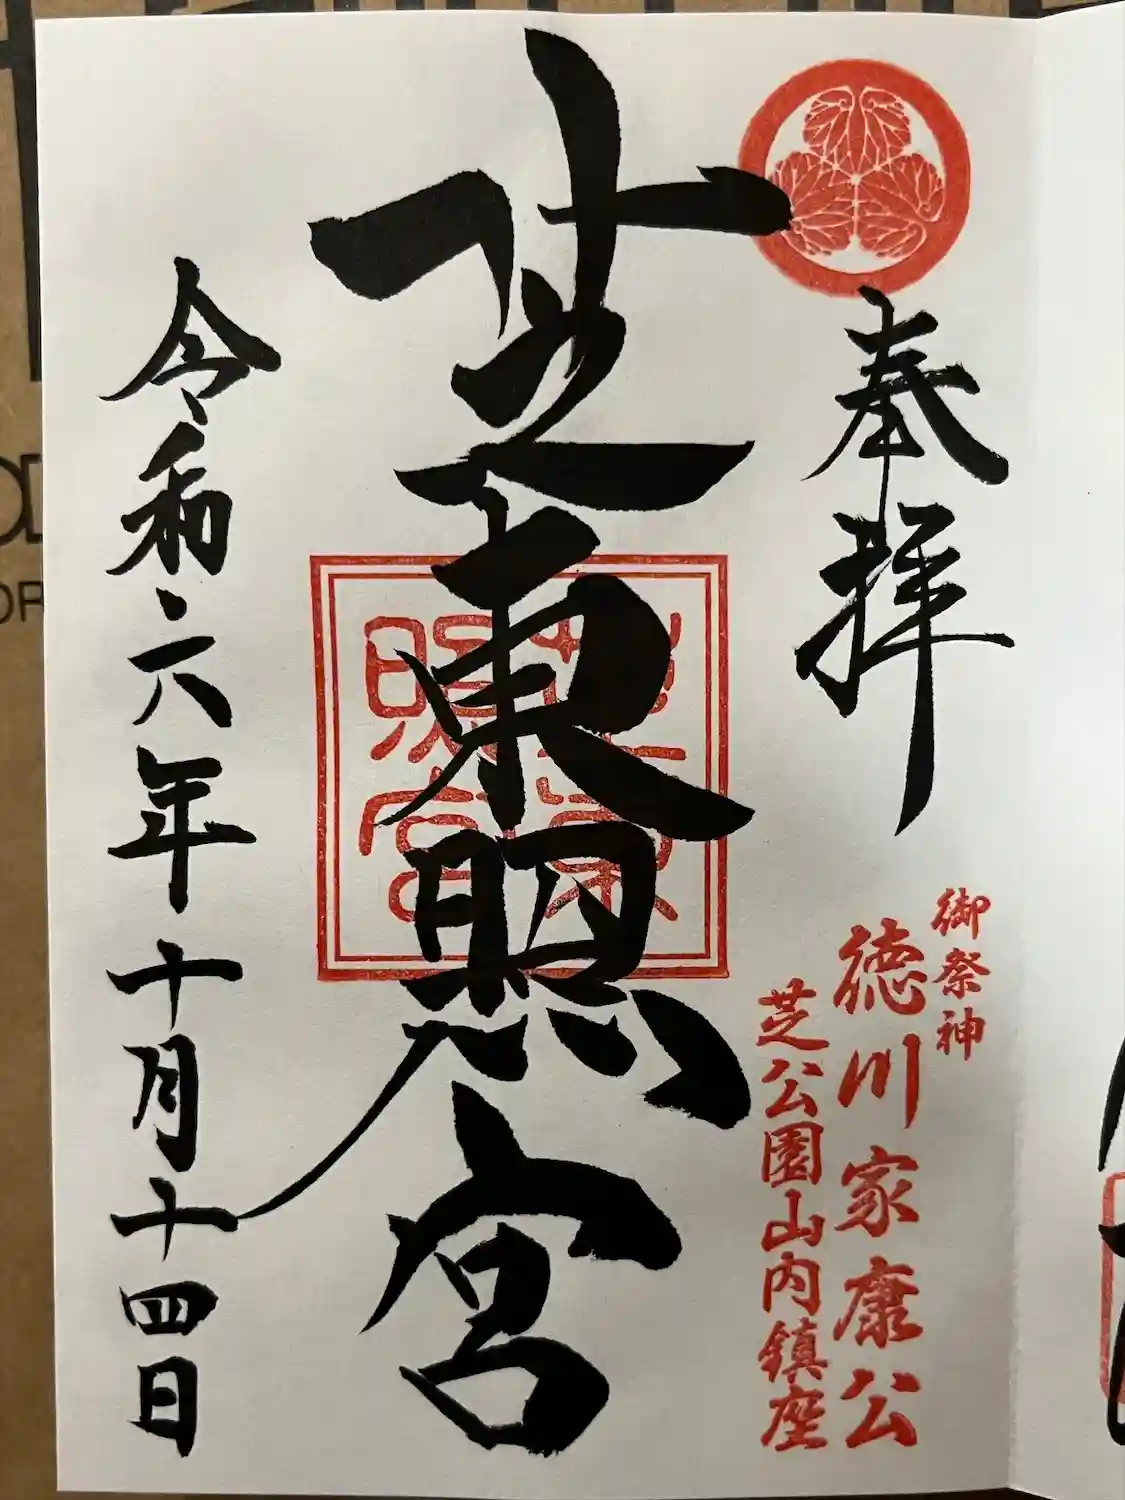 奉拝
御祭神
徳川家康公
芝公園山内鎮座
芝東照宮
芝東照宮
令和六年十月十四日